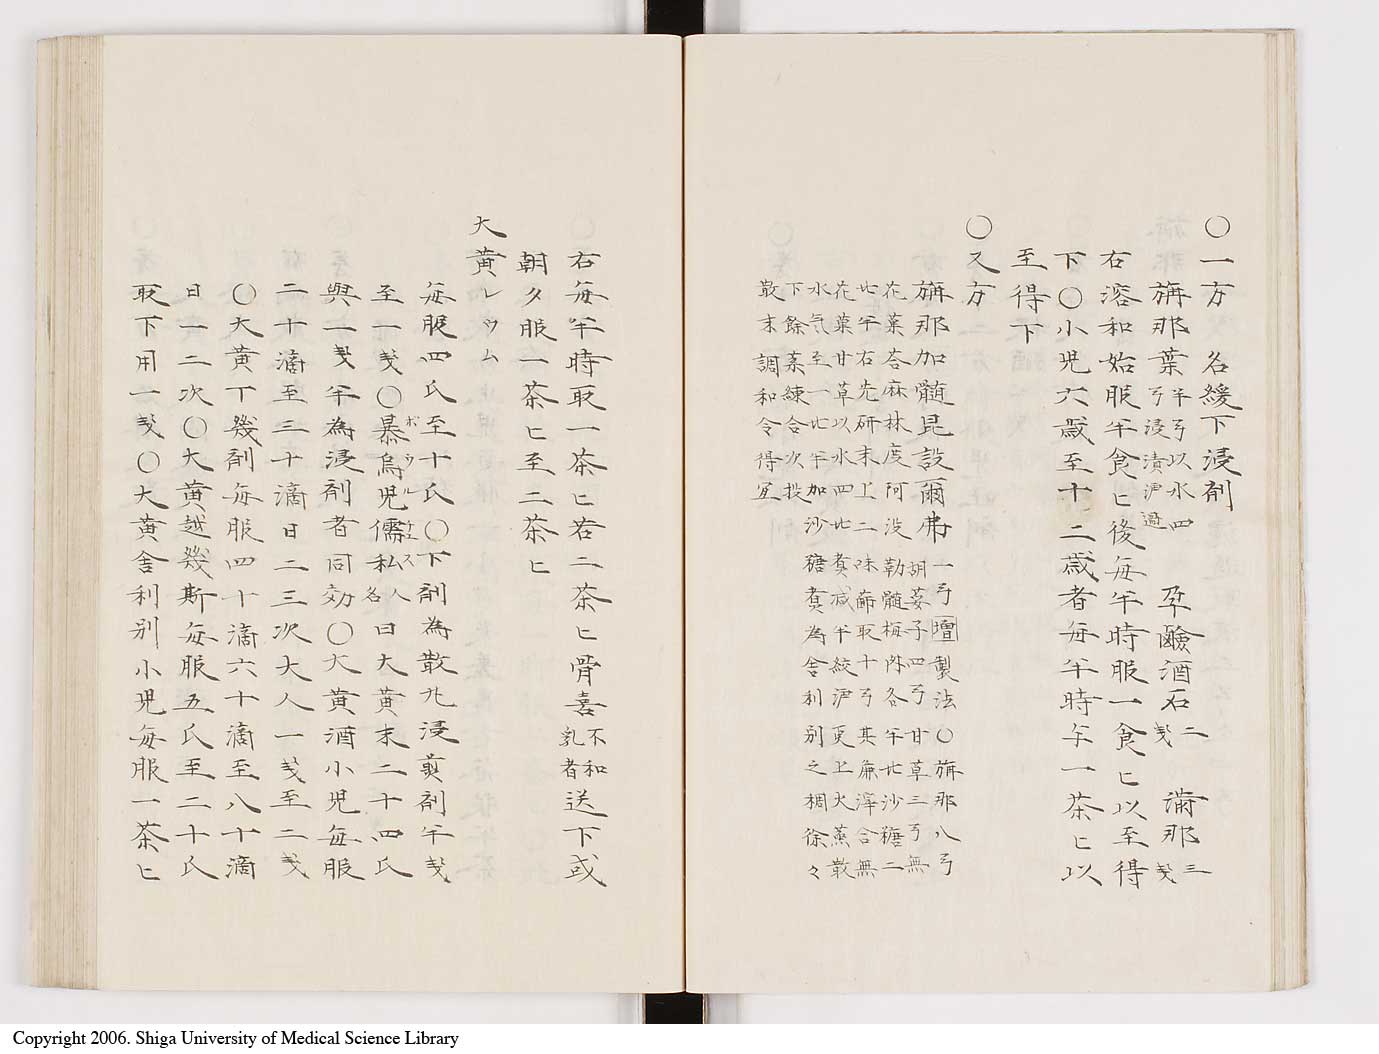 〇一方 名緩下浸剤
旃那葉 半弓以水四弓浸漬濾過 孕鹼酒石 二戔 満那 三戔
右溶和始服半食匕後毎半時服一食匕以至得
下〇小児六歳至十二歳者毎半時与一茶匕以
至得下
〇又方
旃那加髄昆設爾弗 一弓 壇製法〇旃那八弓
胡荽子四弓甘草三弓無
花菓答麻林度阿没勒髄梅肉各半比沙糖二
比半右先研末上二味篩取十弓其麁滓合無
花菓甘草以水四比煮減半絞濾更上火蒸散
水气至一比半加沙糖煮為舎利別之稠徐々
下餘薬練合次投
散末調和令得宜
右毎半時取一茶匕若二茶匕骨喜 不和乳者 送下或
朝夕服一茶匕至二茶匕
大黄レウム
毎服四氏至十氏〇下剤為散丸浸煎剤半戔
至一戔〇暴烏児儒私 ボウルユス 人名 曰大黄末二十四氏
與一戔半為浸剤者同効〇大黄酒小児毎服
二十滴至三十滴日二三次大人一戔至二戔
〇大黄丁幾剤毎服四十滴六十滴至八十滴
日一二次〇大黄越幾斯毎服五氏至二十氏
取下用一戔〇大黄舎利別小児毎服一茶匕
Copyright 2006. Shiga University of Medical Science Library